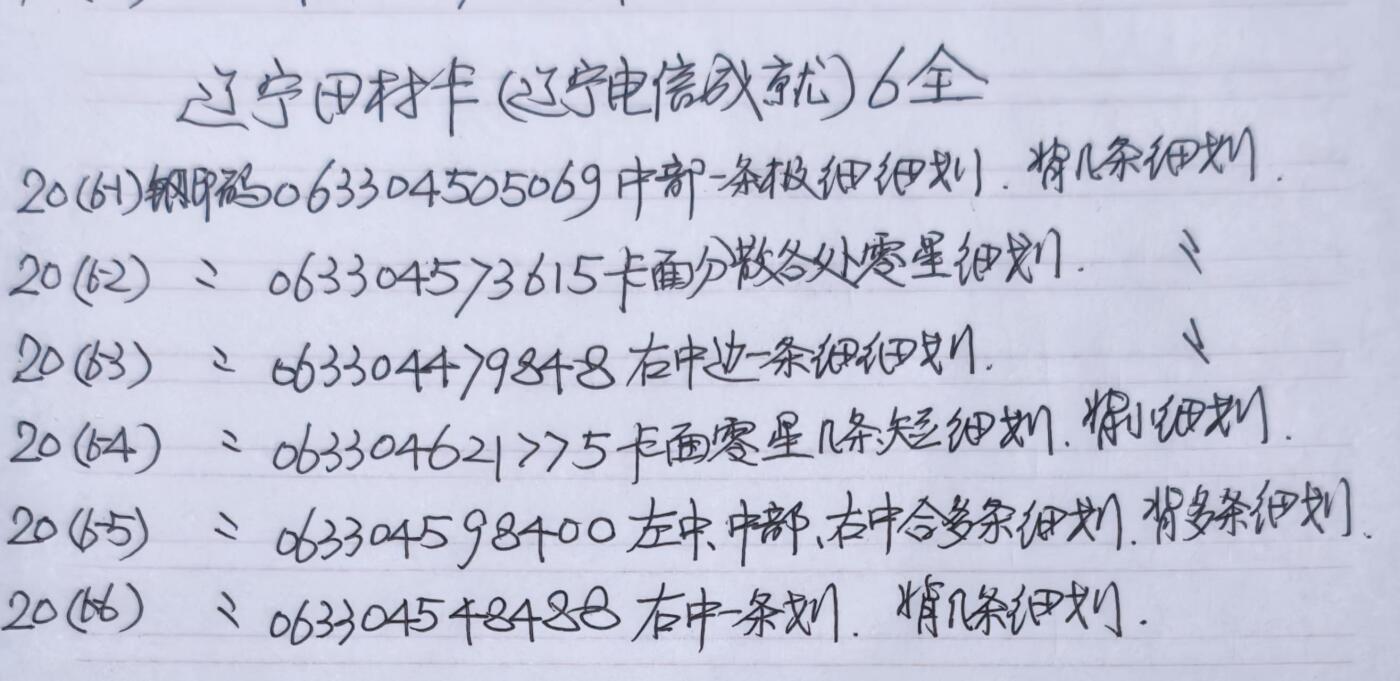 辽宁田村卡(辽宁电信成就)6全
20(6-1)钢印码063304505069中部一条极细细划.背几条细划.
20(6-2) 〃 063304573615卡面分散各处零星细划. 〃
20(6-3) 〃 063304479848右中边一条细细划. 〃
20(6-4) 〃 063304621775卡面零星几条短细划.背小细划.
20(6-5) 〃 063304598400左中、中部、右中合多条细划.背多条细划.
20(6-6) 〃 063304548488右中一条划.背几条细划.